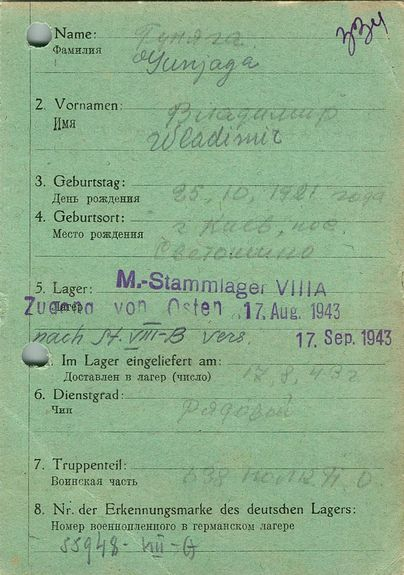 334
Name: Гуняга
Фамилия Gunjaga
2. Vornamen: Владимир
Имя Wladimir
3. Geburtstag: 25, 10, 1921 года
День рождения
4. Geburtsort: г Киев, пос.
Место рождения Светошино
5. Lager: M.-Stammlager VIII A
Лагерь Zugang von Osten 17. Aug. 1943
nach St. VIII-B vers. 17. Sep. 1943
Im Lager eingeliefert am:
Доставлен в лагер (число) 17, 8, 43 г
6. Dienstgrad:
Чин Рядовой
7. Truppenteil:
Воинская часть 638
8. Nr. der Erkennungsmarke des deutschen Lagers:
Номер военнопленного в германском лагере
55948-VIII-A